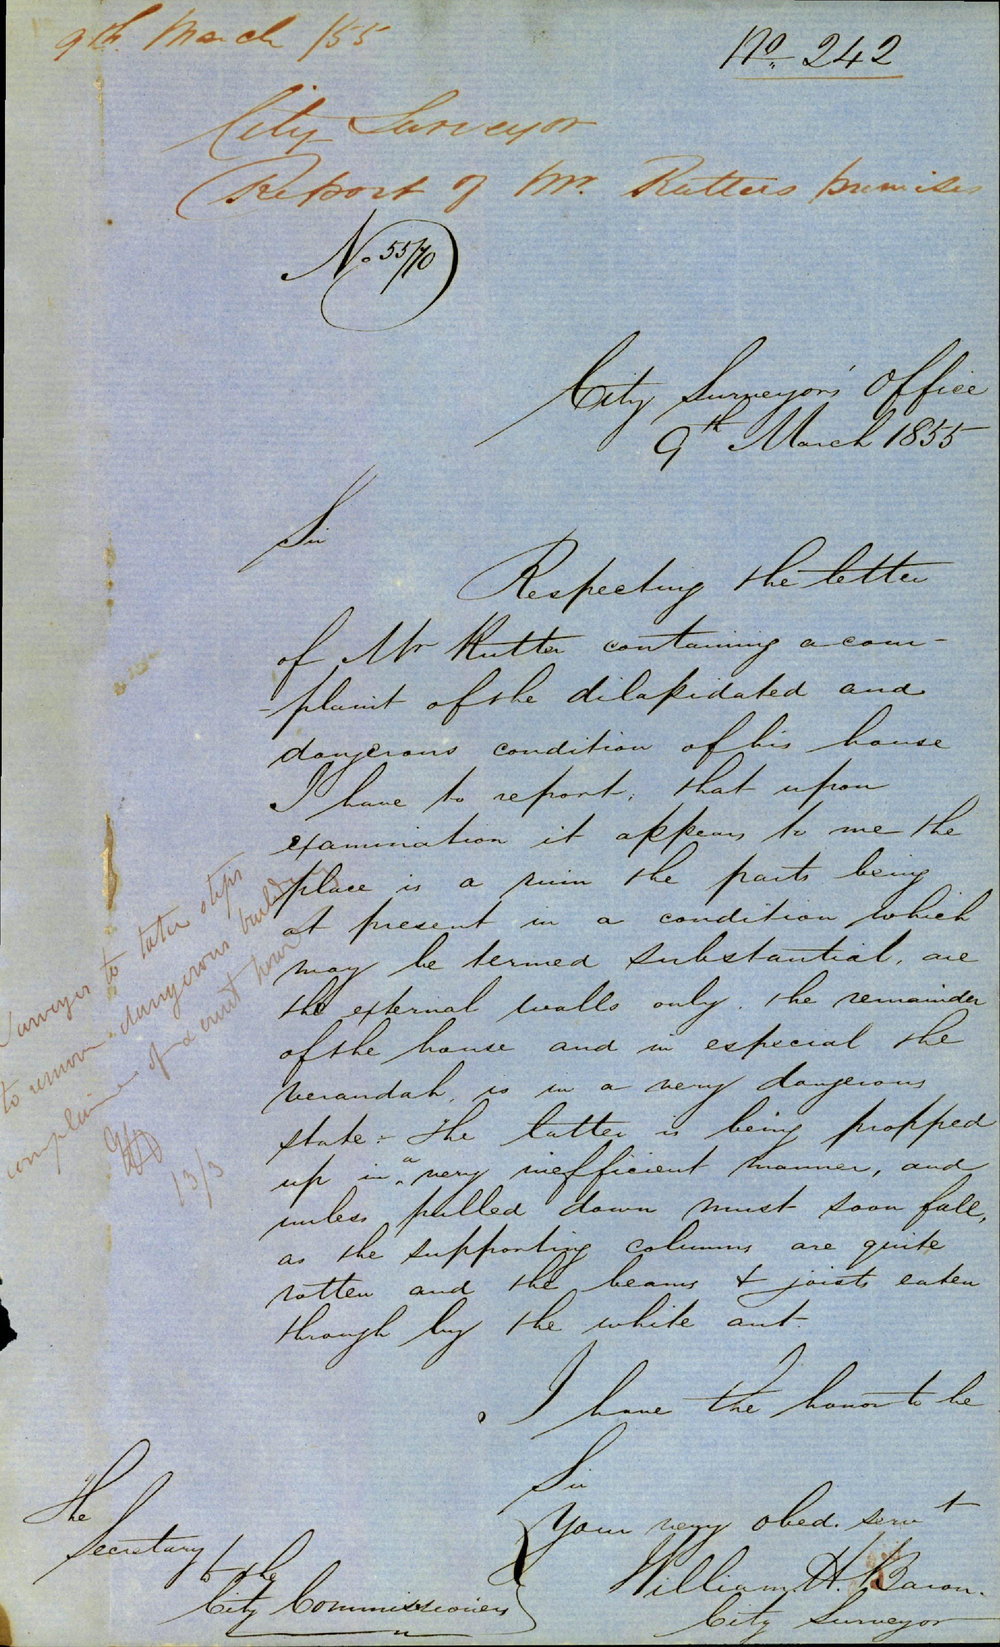 9th March /55
No. 242
City Surveyor
Report of Mr. Rutters premises
No 55/70
City Surveyor's Office
9th March 1855
Sir
Respecting the letter
of Mr Rutter containing a com-
-plaint of the dilapidated and
dangerous condition of his house
I have to report, that upon
examination it appears to me the
place is a ruin the parts being
at present in a condition which
may be termed substantial, are
the external walls only. the remainder
of the house and in especial the
verandah, is in a very dangerous
state:- the latter is being propped
up in a very inefficient manner, and
unless pulled down must soon fall,
as the supporting columns are quite
rotten and the beams & joists eaten
through by the white ant.
I have the honor to be
Sir
Your very obed. servt
William H. Baron.
City Surveyor
The
Secretary
to the
City Commissioners
Surveyor to take steps
to remove dangerous building
complaine of
13/3